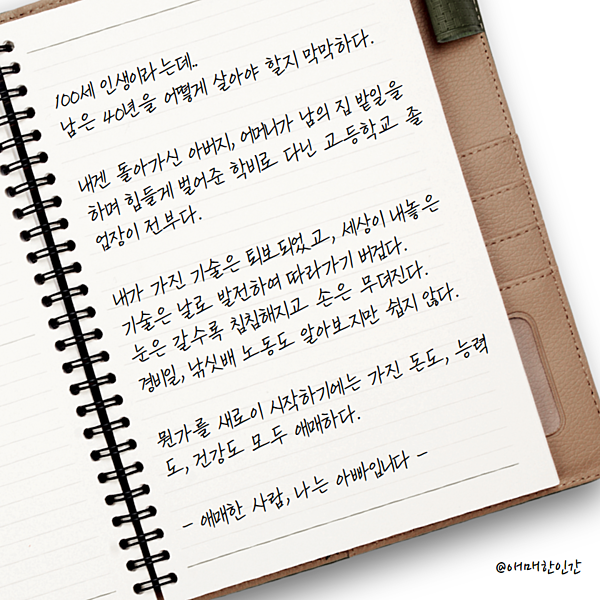 100세 인생이라는데..
남은 40년을 어떻게 살아야 할지 막막하다.
내겐 돌아가신 아버지, 어머니가 남의 집 밭일을
하며 힘들게 벌어준 학비로 다닌 고등학교 졸
업장이 전부다.
내가 가진 기술은 퇴보되었고, 세상이 내놓은
기술은 날로 발전하여 따라가기 버겁다.
눈은 갈수록 침침해지고 손은 무뎌진다.
경비일, 낚싯배 노동도 알아보지만 쉽지 않다.
뭔가를 새로이 시작하기에는 가진 돈도, 능력
도, 건강도 모두 애매하다.
- 애매한 사람, 나는 아빠입니다 -
@애매한인간